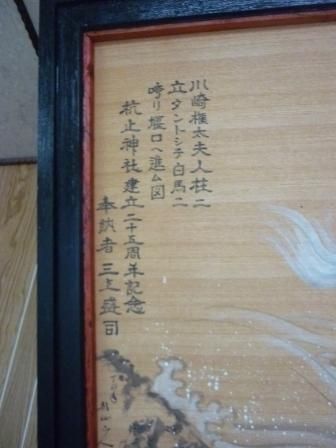 川崎権太夫人柱ニ
立タントシテ白馬ニ
跨リ堰口ヘ進ム図
杭止神社建立二十五周年記念
奉諾者 三上盛司